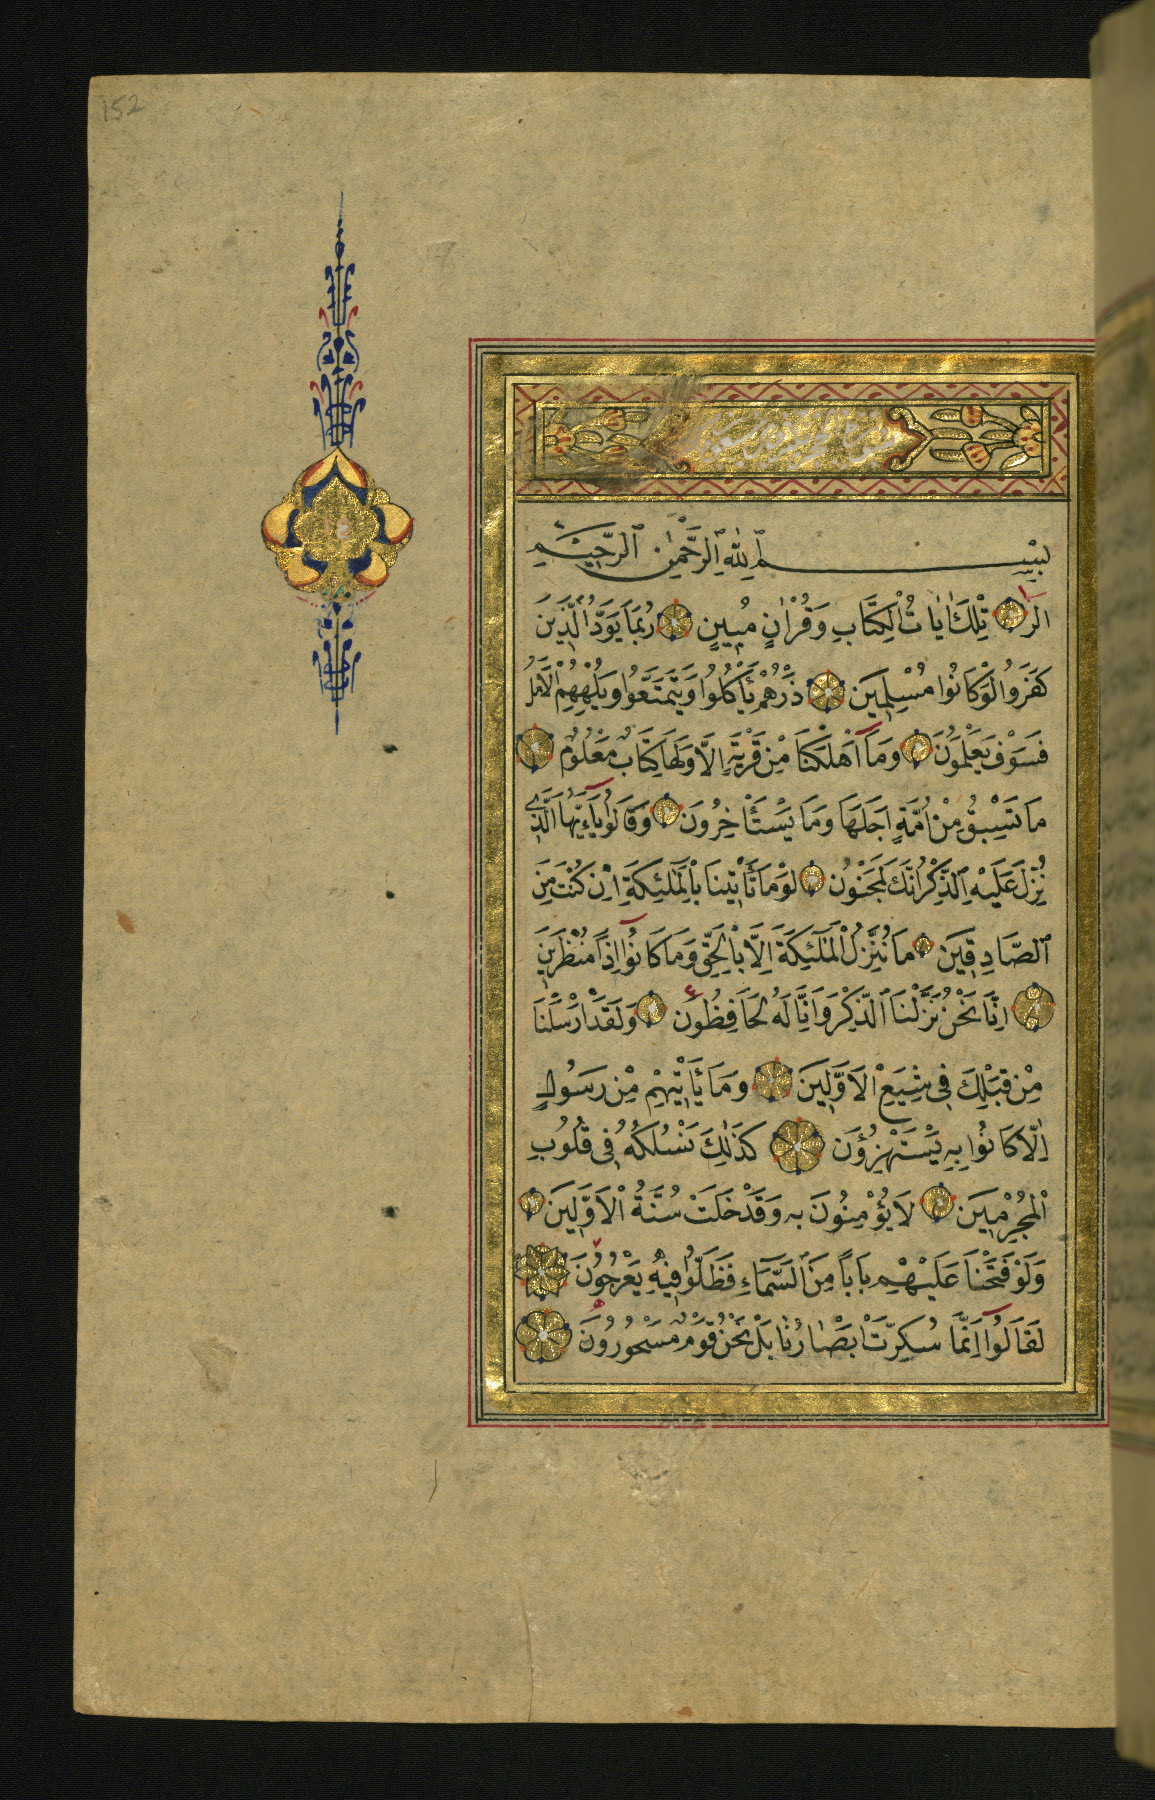 152
بِسْمِ ٱللّٰهِ ٱلرَّحْمٰنِ ٱلرَّحِيمِ
الٓرٰ تِلْكَ اٰيَاتُ الْكِتَابِ وَقُرْاٰنٍ مُبِينٍ رُبَمَا يَوَدُّ الَّذِينَ
كَفَرُوا لَوْ كَانُوا مُسْلِمِينَ ذَرْهُمْ يَأْكُلُوا وَيَتَمَتَّعُوا وَيُلْهِهِمُ الْاَمَلُ
فَسَوْفَ يَعْلَمُونَ وَمَآ اَهْلَكْنَا مِنْ قَرْيَةٍ اِلَّا وَلَهَا كِتَابٌ مَعْلُومٌ
مَا تَسْبِقُ مِنْ اُمَّةٍ اَجَلَهَا وَمَا يَسْتَأْخِرُونَ وَقَالُوا يَآءَيُّهَا الَّذِي
نُزِّلَ عَلَيْهِ ٱلذِّكْرُ اِنَّكَ لَمَجْنُونٌ لَوْ مَا تَأْتِينَا بِالْمَلٰئِكَةِ اِنْ كُنْتَ مِنَ
ٱلصَّادِقِينَ مَا نُنَزِّلُ الْمَلٰئِكَةَ اِلَّا بِالْحَقِّ وَمَا كَانُوٓا اِذًا مُنْظَرِينَ
اِنَّا نَحْنُ نَزَّلْنَا ٱلذِّكْرَ وَاِنَّا لَهُ لَحَافِظُونَ وَلَقَدْ اَرْسَلْنَا
مِنْ قَبْلِكَ فِي شِيَعِ الْاَوَّلِينَ وَمَا يَأْتِيهِمْ مِنْ رَسُولٍ
اِلَّا كَانُوا بِهِ يَسْتَهْزِؤُنَ كَذٰلِكَ نَسْلُكُهُ فِي قُلُوبِ
الْمُجْرِمِينَ لَا يُؤْمِنُونَ بِهِ وَقَدْ خَلَتْ سُنَّةُ الْاَوَّلِينَ
وَلَوْ فَتَحْنَا عَلَيْهِمْ بَابًا مِنَ ٱلسَّمَآءِ فَظَلُّوا فِيهِ يَعْرُجُونَ
لَقَالُوٓا اِنَّمَا سُكِّرَتْ اَبْصَارُنَا بَلْ نَحْنُ قَوْمٌ مَسْحُورُونَ